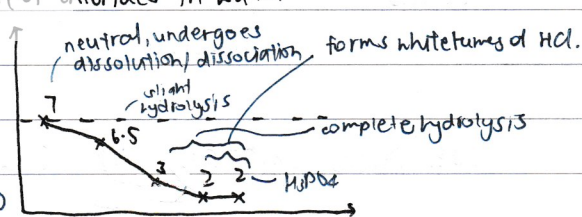 neutral, undergoes
dissolution/dissociation
forms white fumes of HCl.
slight
hydrolysis
7
6.5
complete hydrolysis
3
2 2
H3PO4